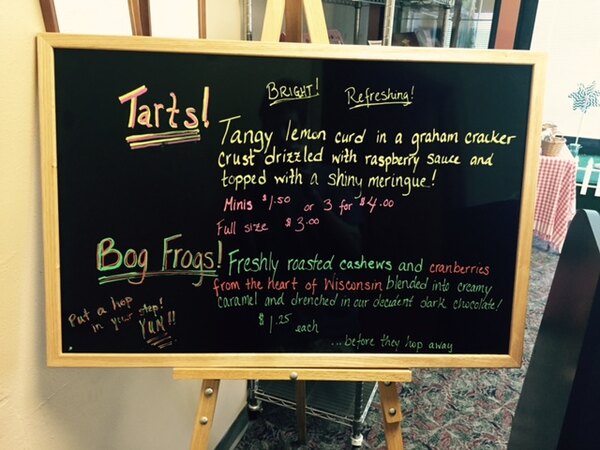 Tarts!
BRIGHT! Refreshing!
Tangy lemon curd in a graham cracker
crust drizzled with raspberry sauce and
topped with a shiny meringue!
Minis $1.50 or 3 for $4.00
Full size $3.00
Bog Frogs!
Freshly roasted cashews and cranberries
from the heart of Wisconsin blended into creamy
caramel and drenched in our decadent dark chocolate!
$1.25 each
Put a hop
in your step!
YUM!!
...before they hop away